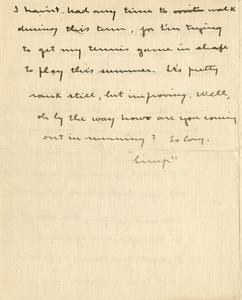 I havn't had any time to walk
during this term, for I'm trying
to get my tennis game in shape
to play this summer. It's pretty
rank still, but improving. Well,
oh by the way how are you coming
out in running? So long.
"Gimp"